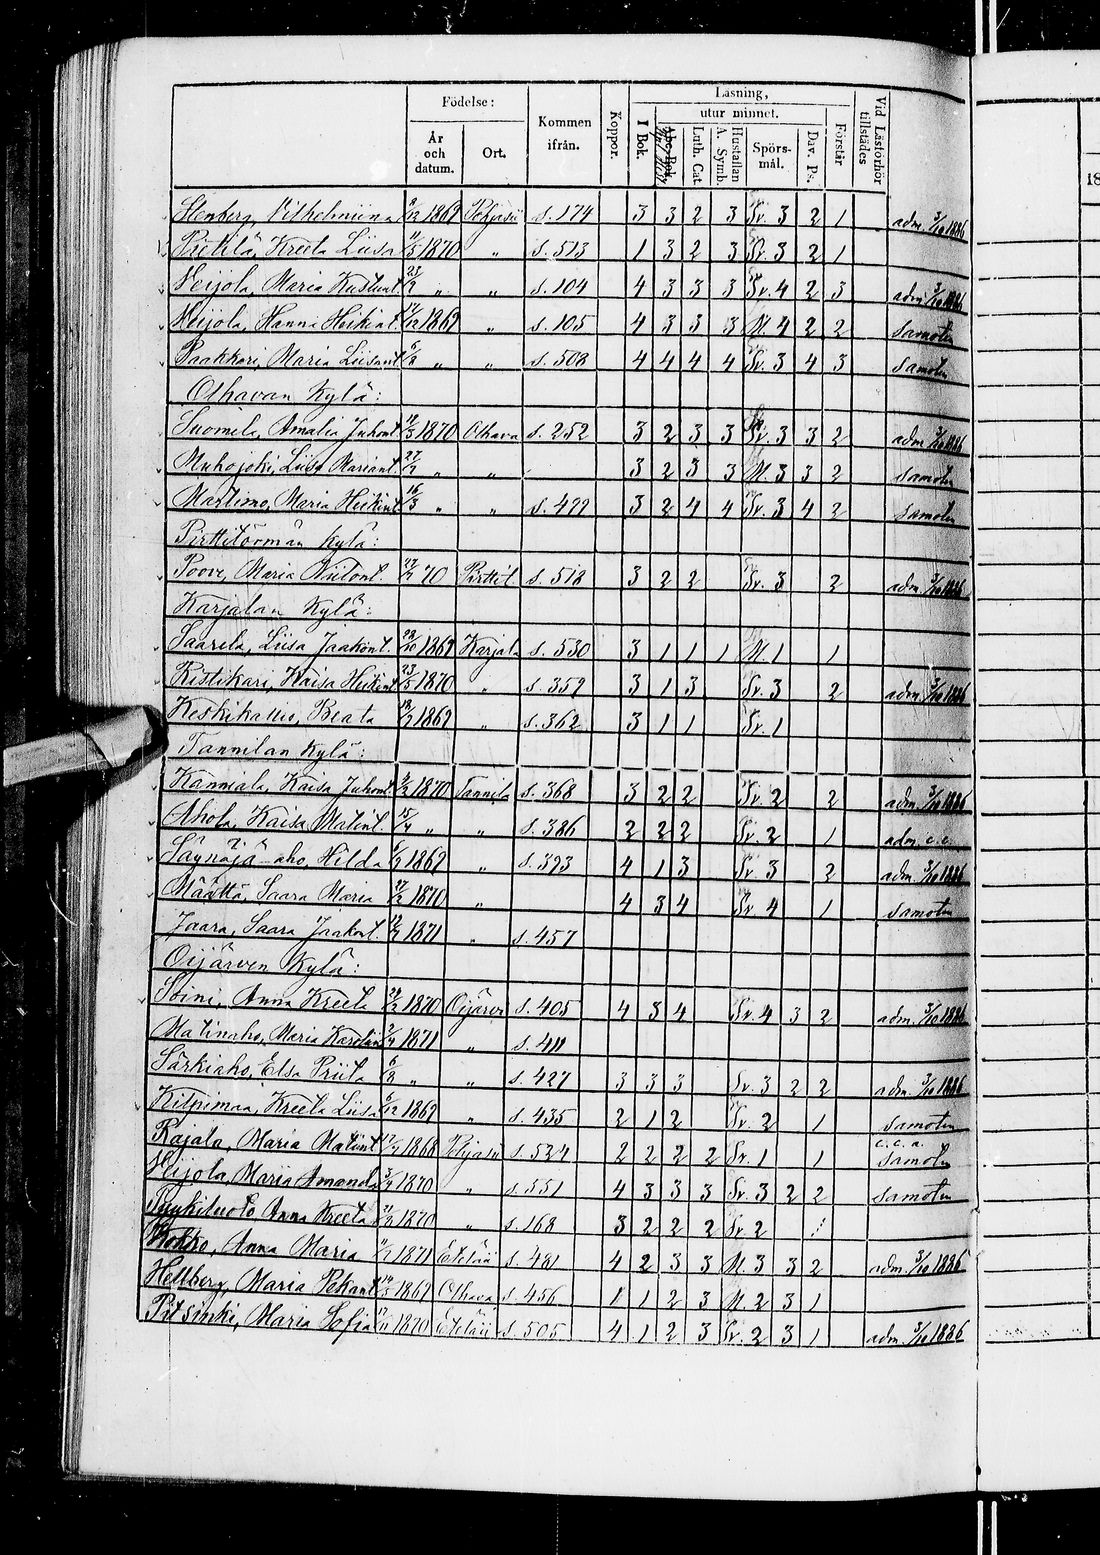 Födelse: Läsning,
År och datum. Ort. Kommen ifrån. Koppor. I Bok. utur minnet. Luth. Cat. Hustaflan A. Symb. Spörs-mål. Dav. Ps. Förstår Vid Läsförhör tillstädes
18
Stenberg, Vilhelmiina 9/12 1869 Pohjasii s. 174 3 3 2 3 Sv. 3 2 1 adm. 3/10 1886
Prittilä, Kreeta Liisa 11/5 1870 " s. 513 1 3 2 3 Sv. 3 2 1
Veijola, Maria Kustaant. " " s. 104 4 3 3 3 Sv. 4 2 3 adm. 3/10 1886
Veijola, Hanna Heikint. 1869 " s. 105 4 3 3 3 N. 4 2 2 samoten
Paakkari, Maria Liisant. " " s. 508 4 4 4 4 Sv. 3 4 3 samoten
Olhavan Kylä:
Suomela, Amalia Juhont. 1870 Olhava s. 252 3 2 3 3 Sv. 3 3 2 adm. 3/10 1886
Muhojoki, Liisa Mariant. 27/7 " " 3 2 3 3 N. 3 3 2 samoten
Martimo, Maria Heikint. 16/3 " " s. 499 3 2 4 4 Sv. 3 4 2 samoten
Pirttitörmän Kylä:
Poove, Maria 70 Pirttit s. 518 3 2 2 Sv. 3 2 adm. 3/10 1886
Karjalan Kylä:
Saarela, Liisa Jaakont. 1869 Karjala s. 530 3 1 1 1 N. 1 1
Ristikari, Kaisa Heikint. 23/5 1870 " s. 359 3 1 3 Sv. 3 2 adm. 3/10 1886
Keskikallio, Beata 1869 " s. 362 3 1 1 Sv. 1
Tannilan Kylä:
Kanniala, Kaisa Juhont. 1870 Tannila s. 368 3 2 2 Sv. 2 2 adm. 3/10 1886
Ahola, Kaisa Matint. 15/4 " " s. 386 2 2 2 Sv. 2 1 adm. c.c.
Säynäjäaho, Hilda 1869 " s. 393 4 1 3 Sv. 3 2 adm. 3/10 1886
Määttä, Saara Maria 1870 " 4 3 4 Sv. 4 1 samoten
Jaara, Saara Jaakont. 1871 " s. 457
Oijärven Kylä:
Soini, Anna Kreeta 1870 Oijärvi s. 405 4 3 4 Sv. 4 3 2 adm. 3/10 1886
Matinaho, Maria 1871 " s. 411
Särkiaho, Elsa Priita 6/8 " " s. 427 3 3 3 Sv. 3 2 2 adm. 3/10 1886
Kilpimaa, Kreeta Liisa 1869 " s. 435 2 1 2 Sv. 2 1 samoten
Rajala, Maria Matint. 1868 Pohjasii s. 524 2 2 2 2 Sv. 1 1 c.c.a. samoten
Veijola, Maria Amanda 1870 " s. 551 4 3 3 3 Sv. 3 2 2 samoten
Anna Kreeta 1870 " s. 168 3 2 2 2 Sv. 2
Kokko, Anna Maria 1871 Eteläii s. 481 4 2 3 3 N. 3 3 2 adm. 3/10 1886
Hellberg, Maria Pekant. 1869 Olhava s. 456 1 1 2 3 N. 2 3 1
Pitsinki, Maria Sofia 1870 Eteläii s. 505 4 1 2 3 Sv. 2 3 1 adm. 3/10 1886